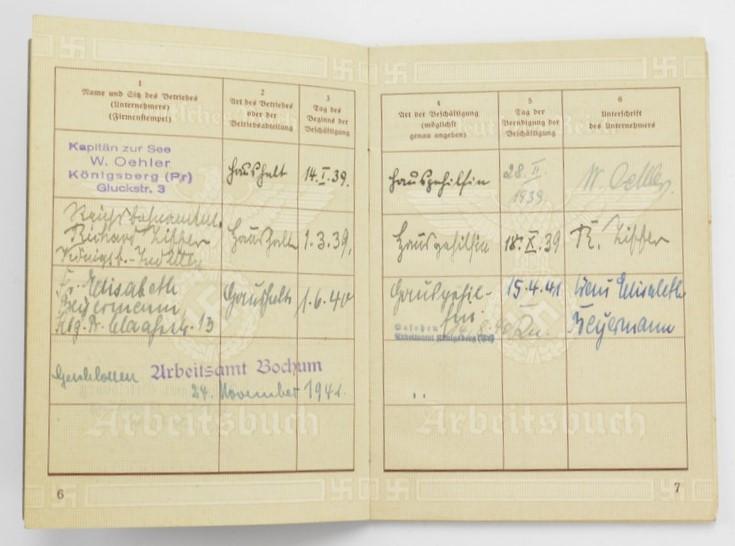 1
Name und Sitz des Betriebes
(Unternehmers)
(Firmenstempel)
2
Art des Betriebes
oder der
Betriebsabteilung
3
Tag des
Beginns der
Beschäftigung
Kapitän zur See
W. Oehler
Königsberg (Pr)
Gluckstr. 3
Haushalt
14.I.39.
Richard
Haushalt
1.3.39.
Fr. Elisabeth
Beyermann
Kbg. Pr. 13
Haushalt
1.6.40
Geschlossen
Arbeitsamt Bochum
24. November 1941.
Arbeitsbuch
6
4
Art der Beschäftigung
(möglichst
genau angeben)
5
Tag der
Beendigung der
Beschäftigung
6
Unterschrift
des Unternehmers
Hausgehilfin
28. II
1939
W. Oehler.
Hausgehilfin
18.X.39
R.
Hausgehil-
fin
15.4.41
Frau Elisabeth
Beyermann
Gesehen
Arbeitsamt Königsberg (Pr)
Arbeitsbuch
7